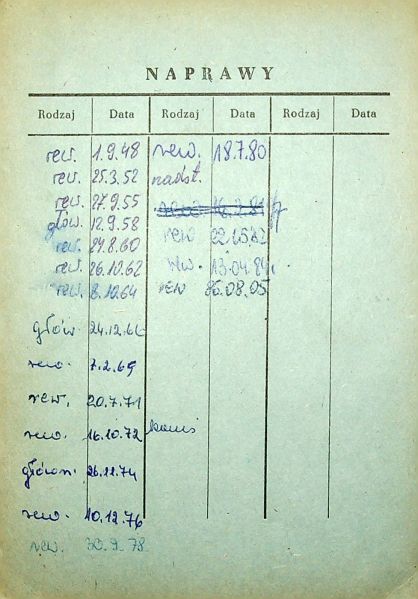 NAPRAWY
Rodzaj Data Rodzaj Data Rodzaj Data
rew. 1.9.48 rew. 18.7.80
rew. 25.3.52 nadst.
rew. 27.9.55
głów. 12.9.58 rew 22.05.82
rew. 29.8.60
rew. 26.10.62 rew. 13.04.84.
rew. 8.10.64 rew 86.08.05
głów. 24.12.66
rew. 7.2.69
rew. 20.7.71
rew. 16.10.72
główn. 26.11.74
rew. 10.12.76
rew. 30.9.78